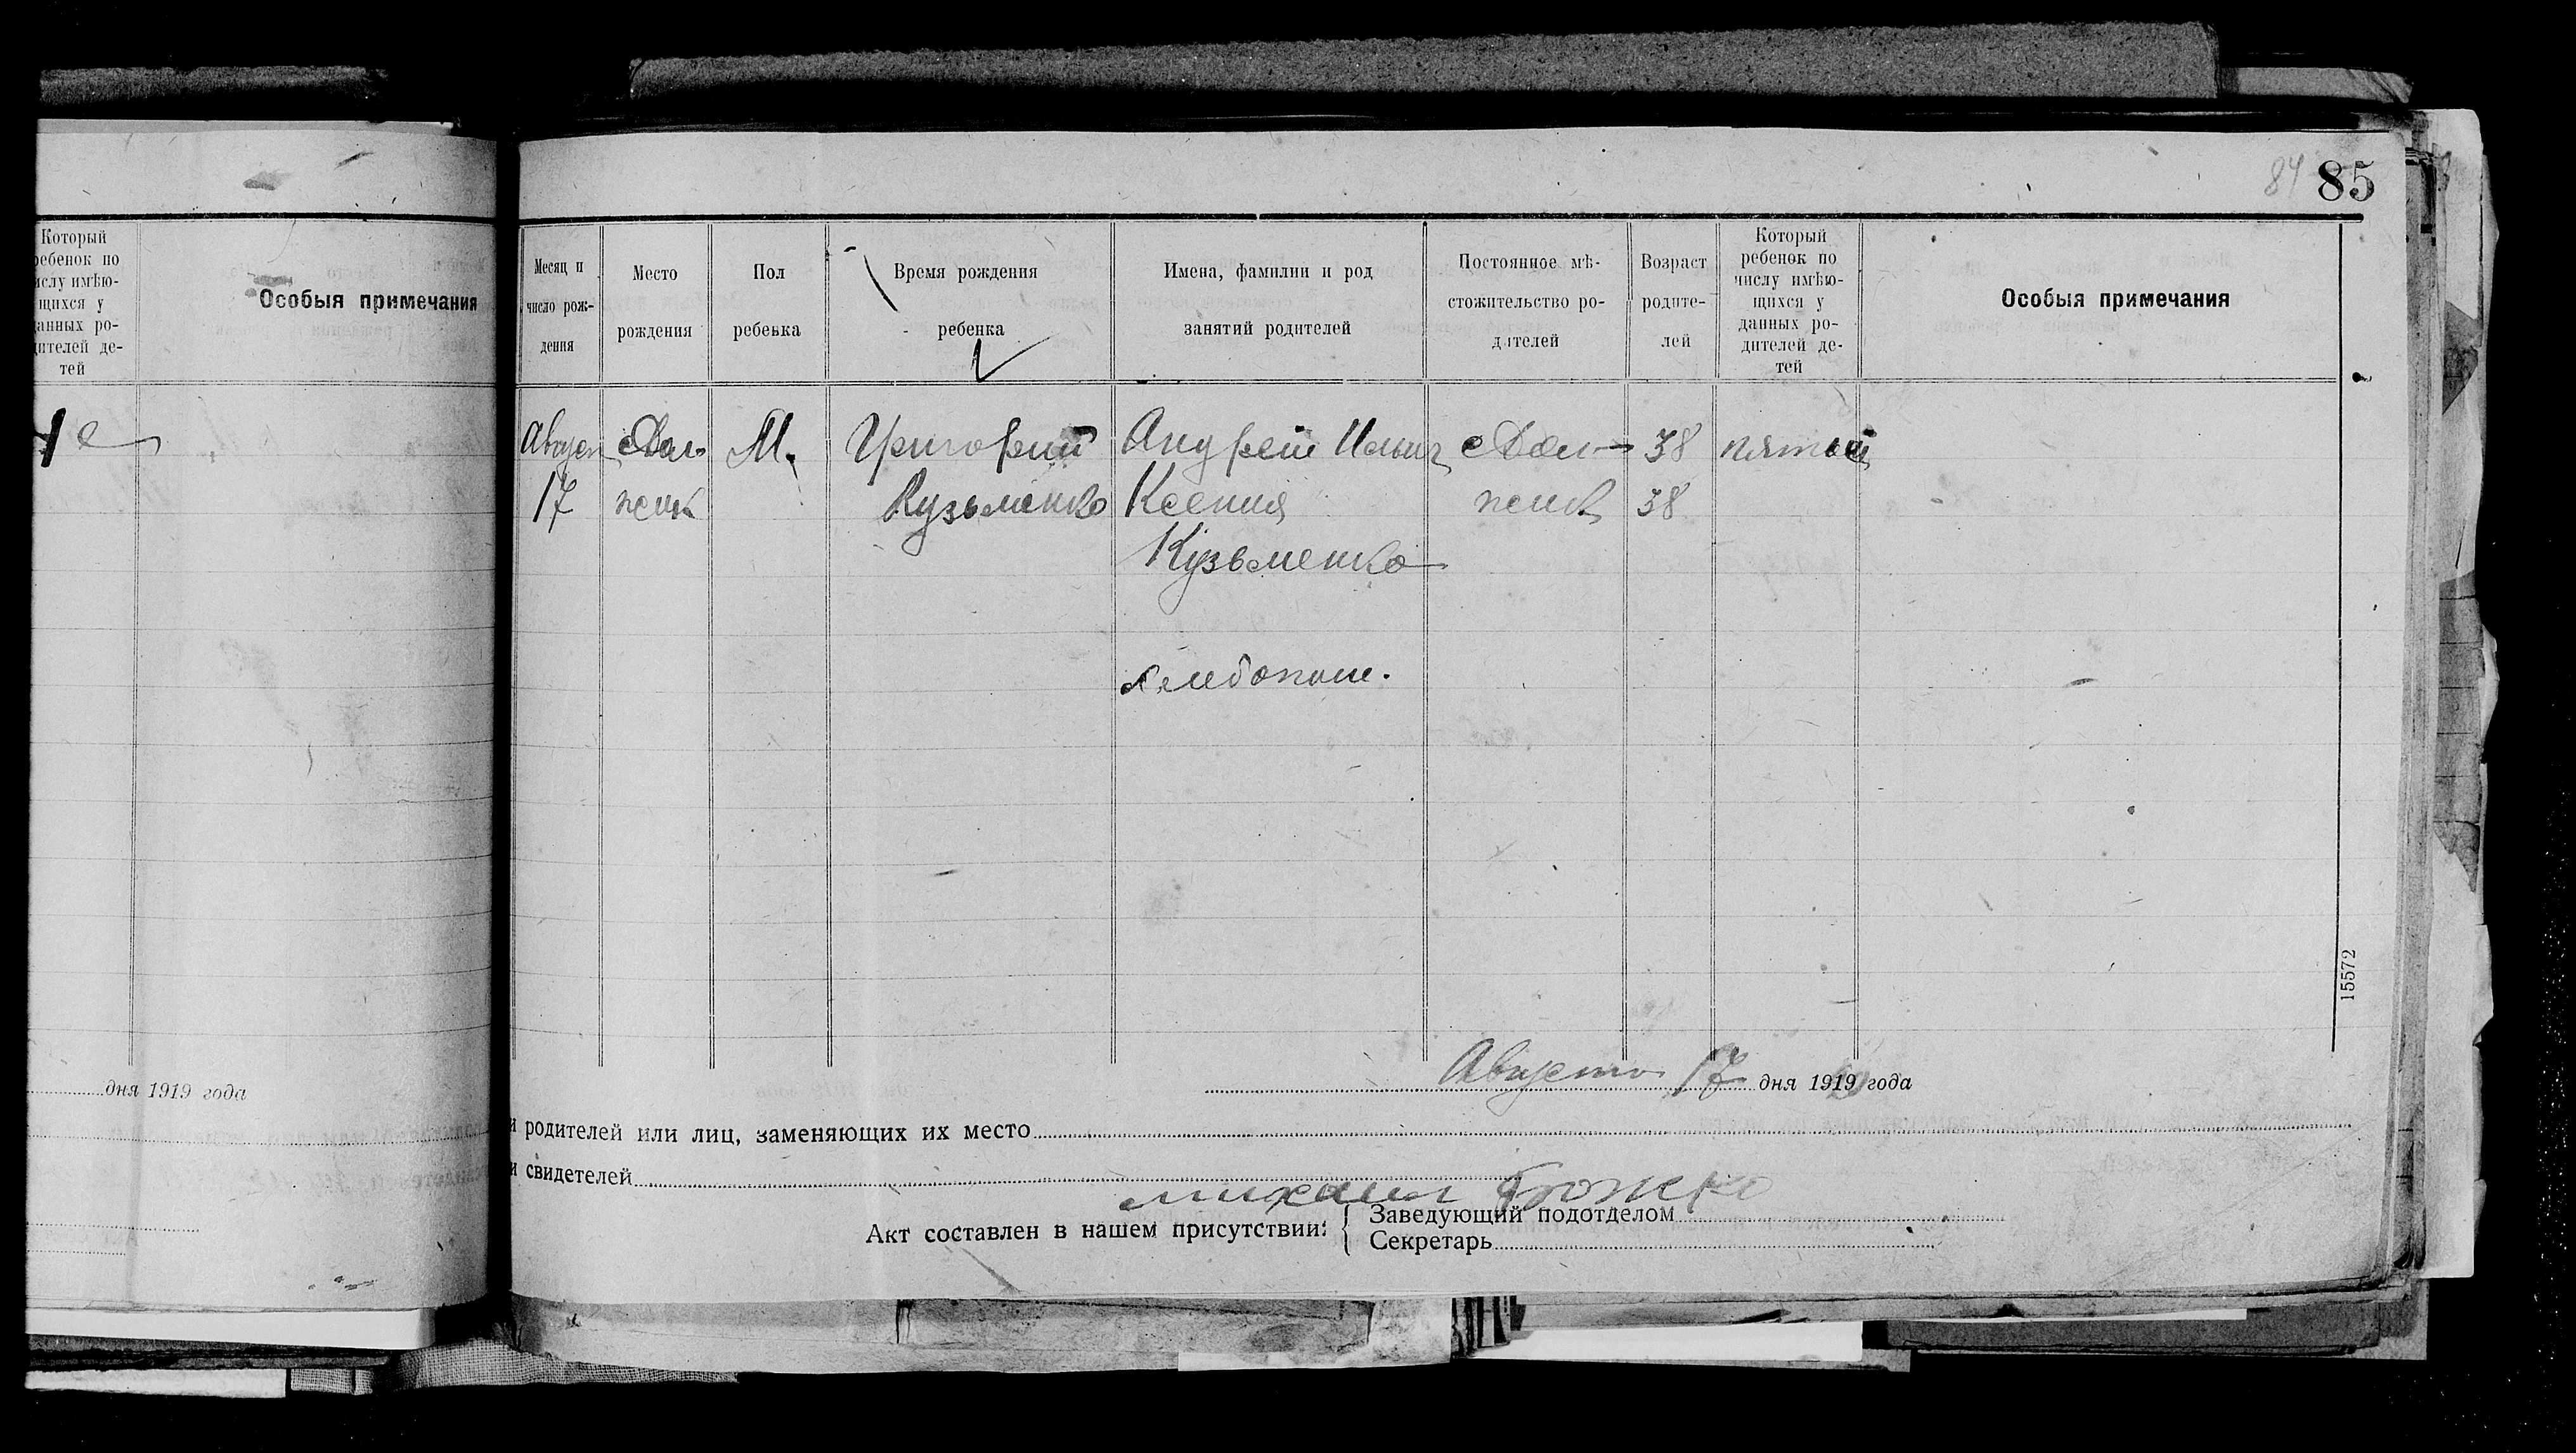 84 85
Который
ребенок по
числу имѣю-
щихся у
данных ро-
дителей де-
тей
Особыя примечания
дня 1919 года
Месяц и
число рож-
дения
Место
рождения
Пол
ребенка
Время рождения
ребенка
Имена, фамилии и род
занятий родителей
Постоянное мѣ-
стожительство ро-
дителей
Возраст
родите-
лей
Который
ребенок по
числу имѣю-
щихся у
данных ро-
дителей де-
тей
Особыя примечания
Август
17
Дол
женк
М.
Григорий
Кузьменко
Андрей Ильич
Ксения
Кузьменко
хлебопаш.
Дол
женк
38
38
пятый
15572
Августа 17 дня 1919 года
и родителей или лиц, заменяющих их место
и свидетелей
михаил Божко
Акт составлен в нашем присутствии:
Заведующий подотделом
Секретарь